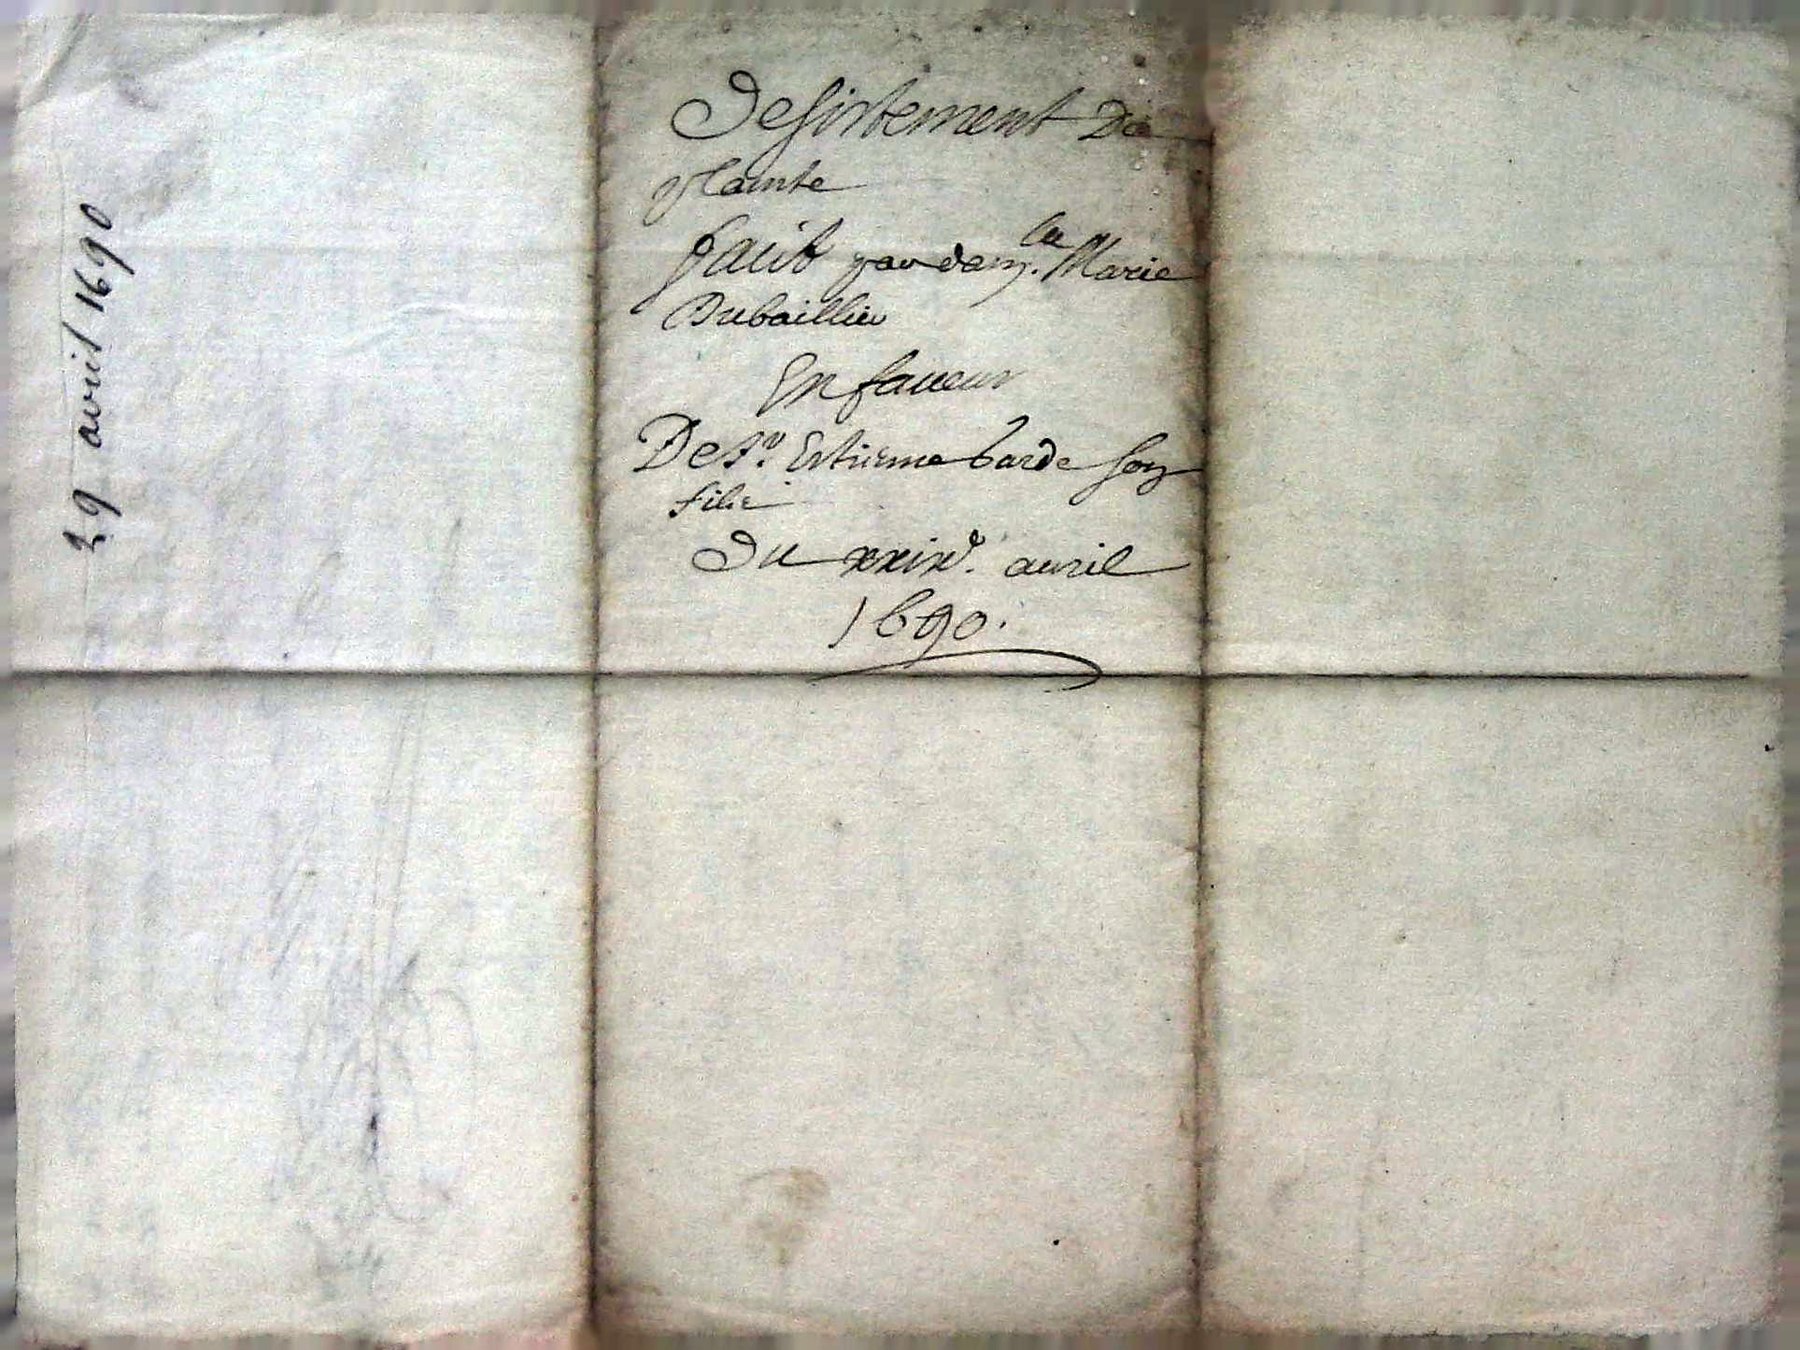 29 avril 1690
Desistement De
plainte
faict par dam.lle Marie
Dubaillieu
En faueur
De sr. Estienne barde son
filz
Du xxixe. auril
1690.